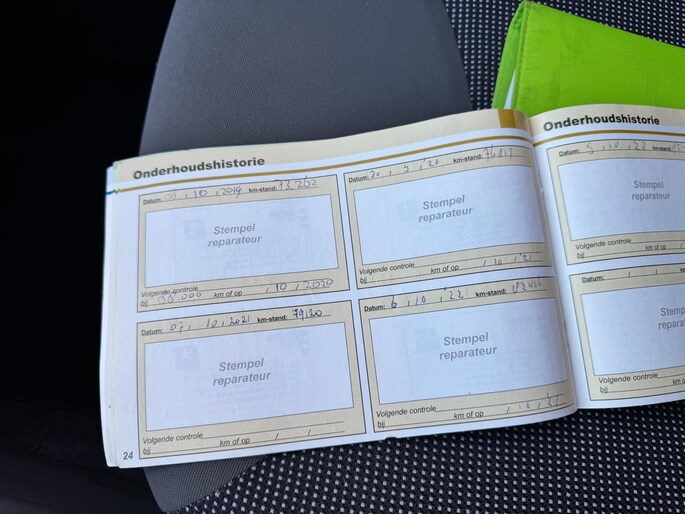 Onderhoudshistorie
Datum: , 10 , 2019 km-stand: 73.262
Stempel
reparateur
Volgende controle
bij km of op , 10 , 2020
Datum: 20 , 5 , '20 km-stand:
Stempel
reparateur
Volgende controle
bij km of op , 10 , '21
Datum: 07, 10, 2021 km-stand: 79120
Stempel
reparateur
Volgende controle
bij km of op , ,
Datum: 6 , 10 , '22 km-stand:
Stempel
reparateur
Volgende controle
bij km of op
24
Onderhoudshistorie
Datum: 5 , 10 , km-stand:
Stempel
reparateur
Volgende controle
bij km of op
Datum: , , km-
Stemp
repara
Volgende controle
bij km of o